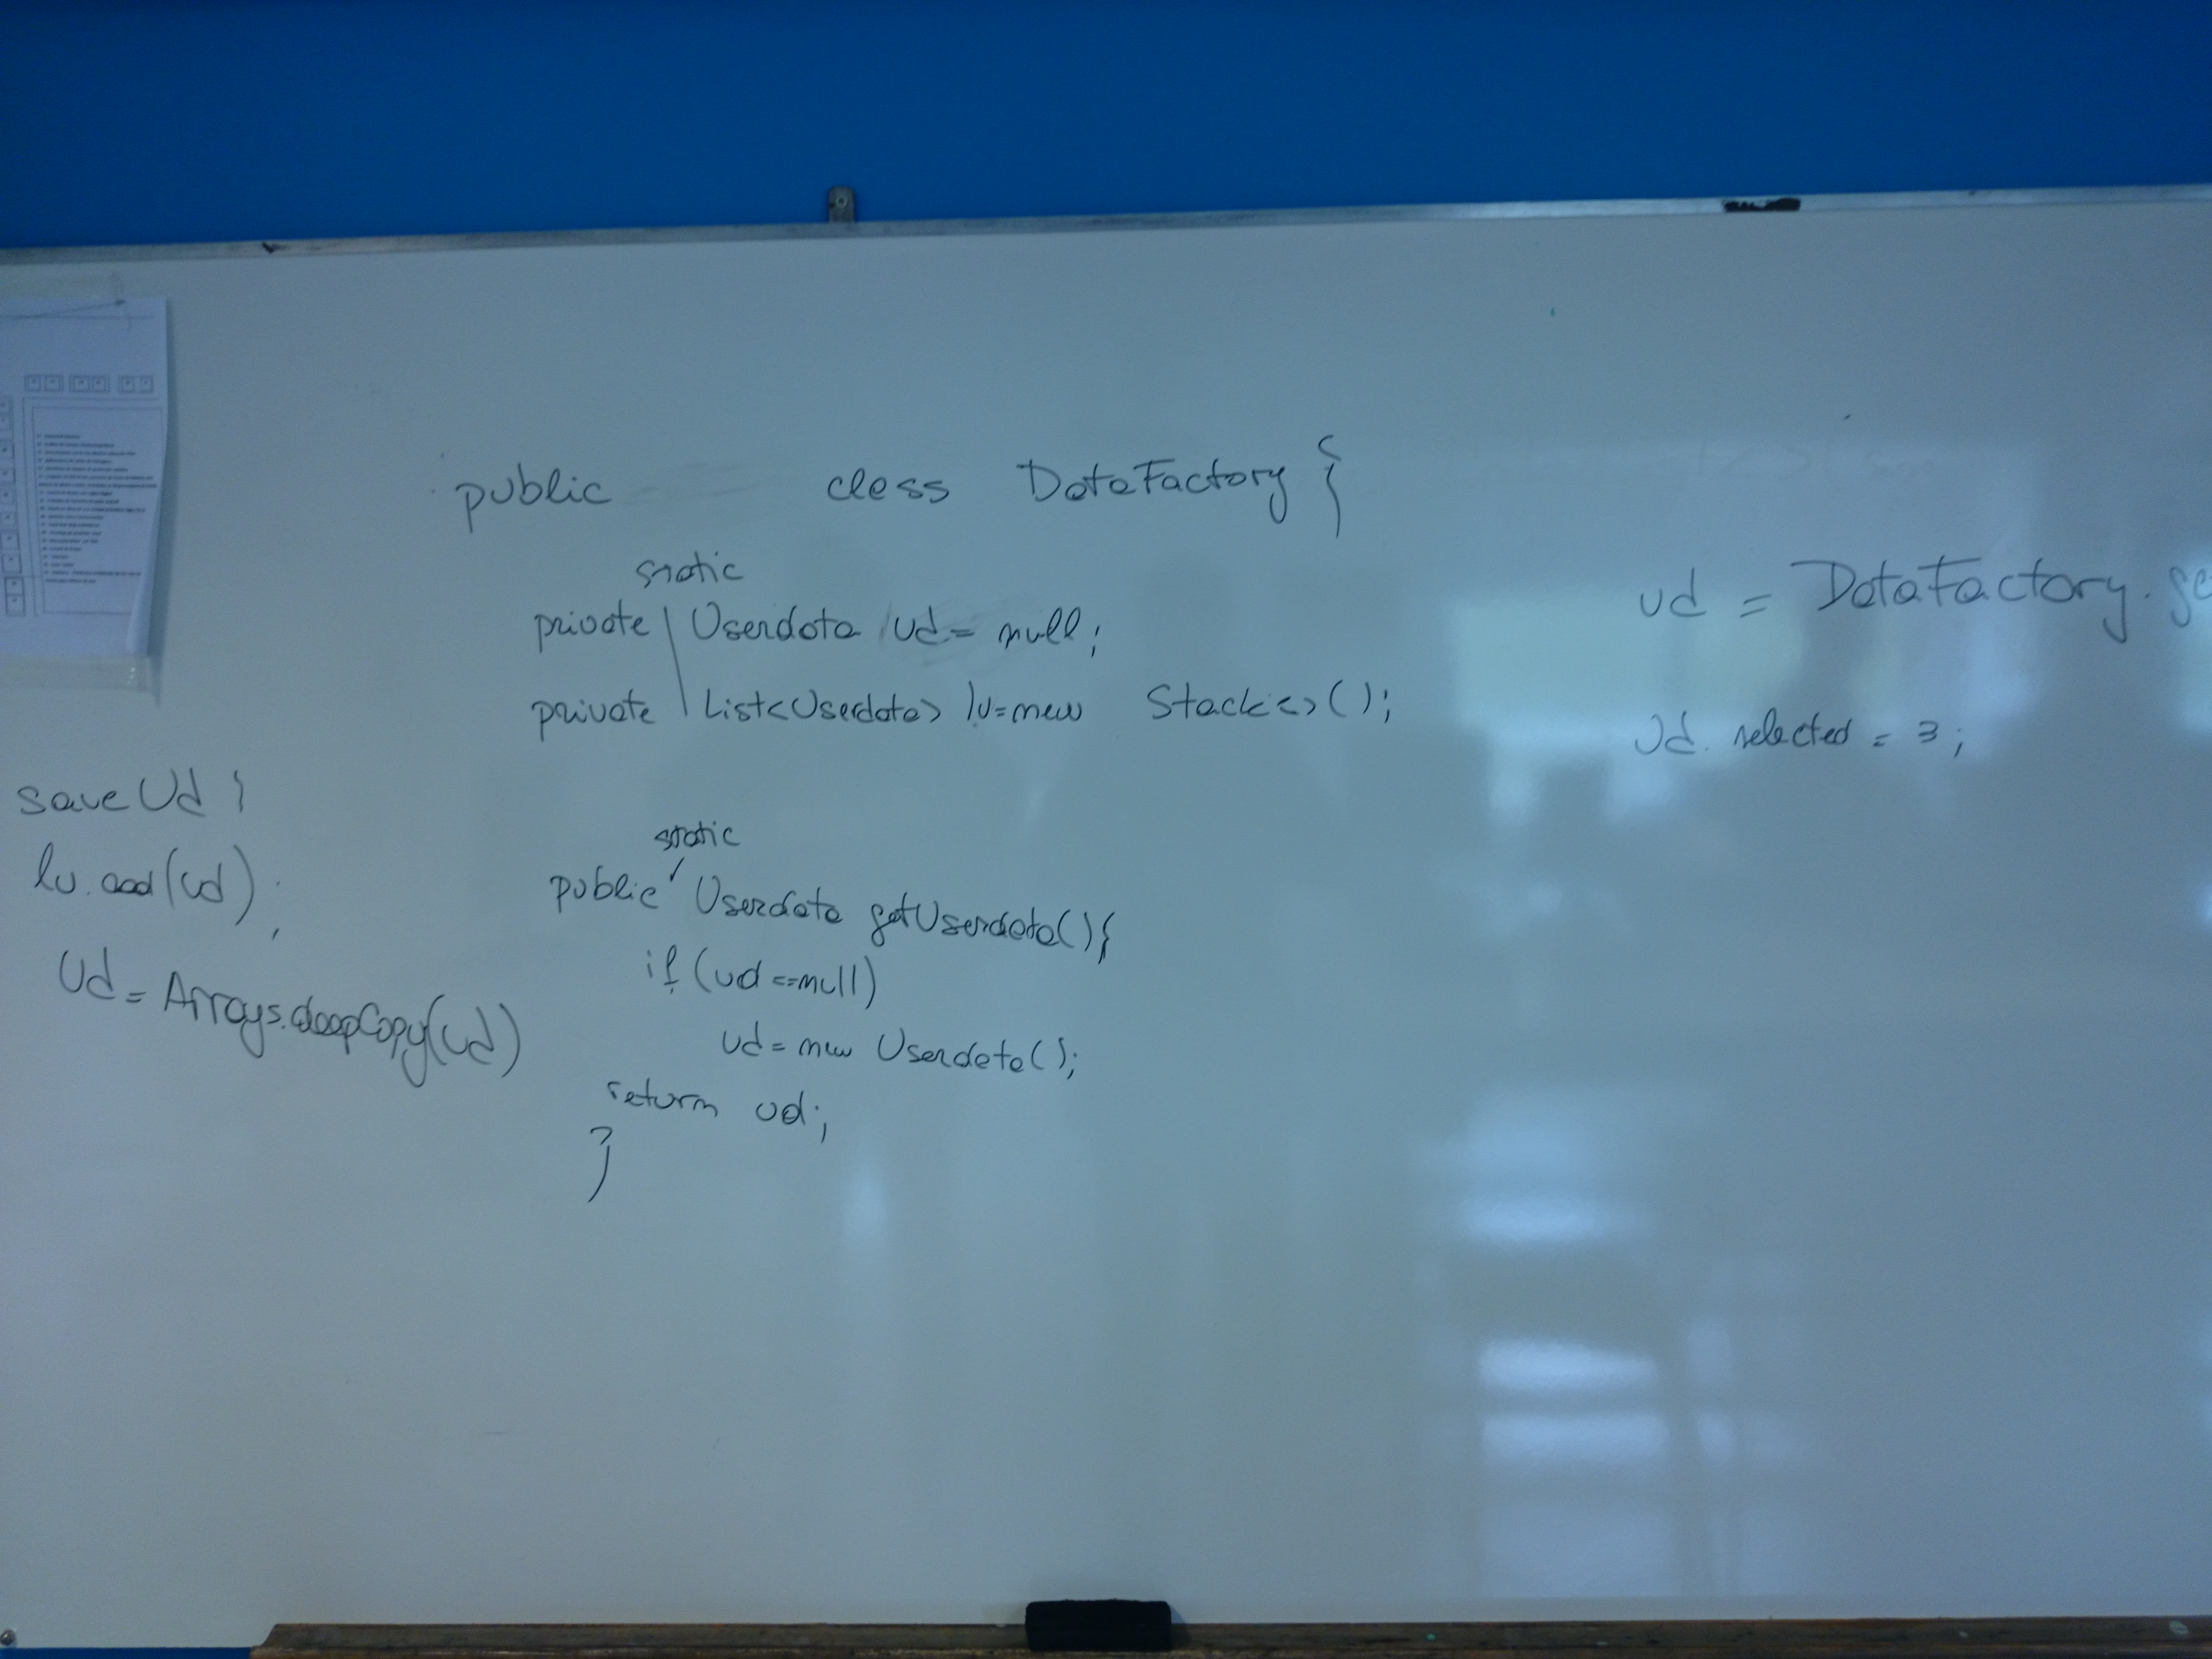 public class DataFactory {
static
private Userdata ud = null;
private List<Userdata> lu=new Stack<>();
static
public Userdata getUserdata(){
if (ud ==null)
ud = new Userdata();
return ud;
}
saveUd {
lu.add(ud);
Ud = Arrays.deepCopy(ud)
ud = DataFactory.ge
Ud. selected = 3;